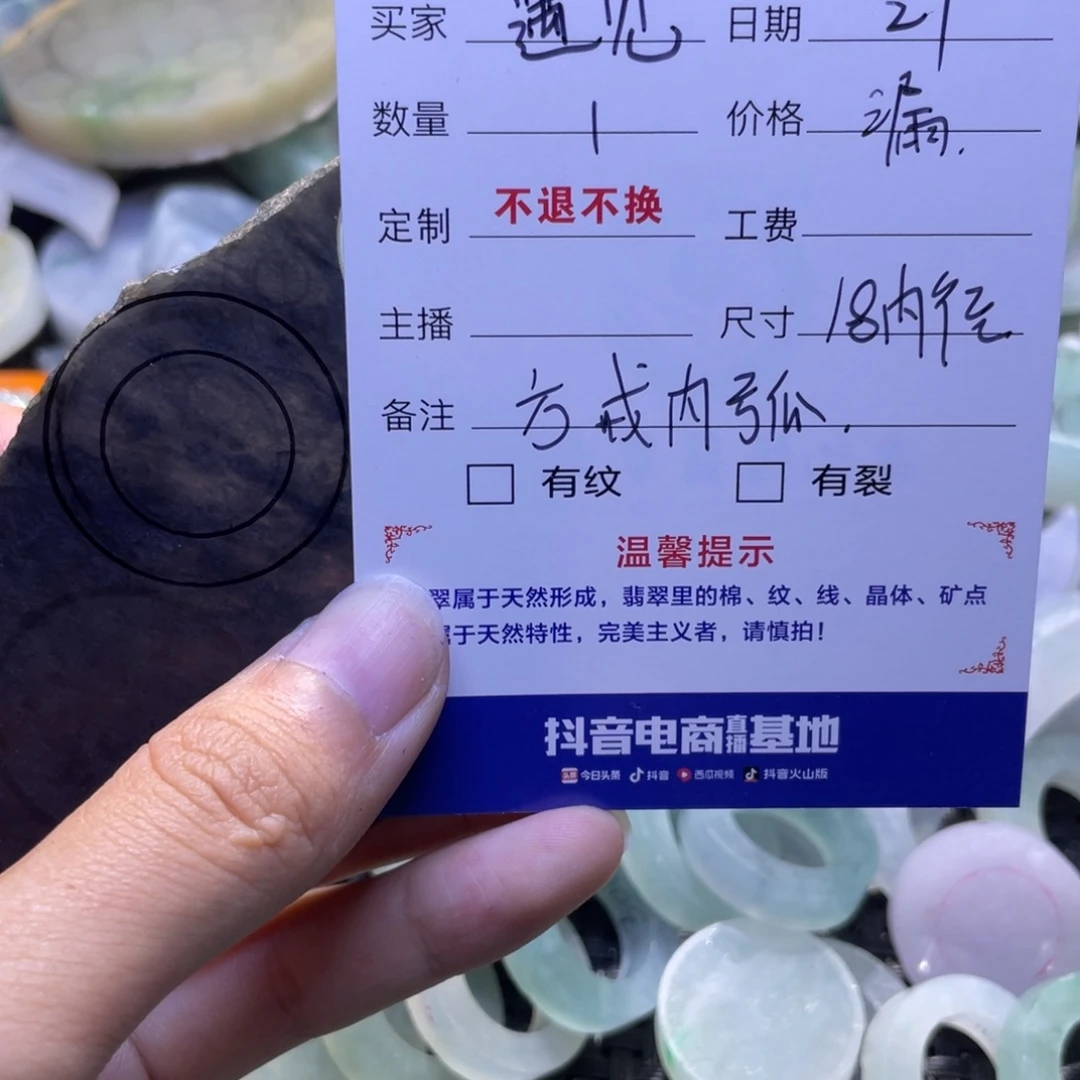 买家 遇见 日期 21
数量 1 价格 漏.
定制 不退不换 工费
主播 尺寸 18内径.
备注 方戒内弓瓜.
有纹 有裂
温馨提示
翠属于天然形成，翡翠里的棉、纹、线、晶体、矿点
属于天然特性，完美主义者，请慎拍！
抖音电商直播基地
头条 今日头条 抖音 西瓜视频 抖音火山版